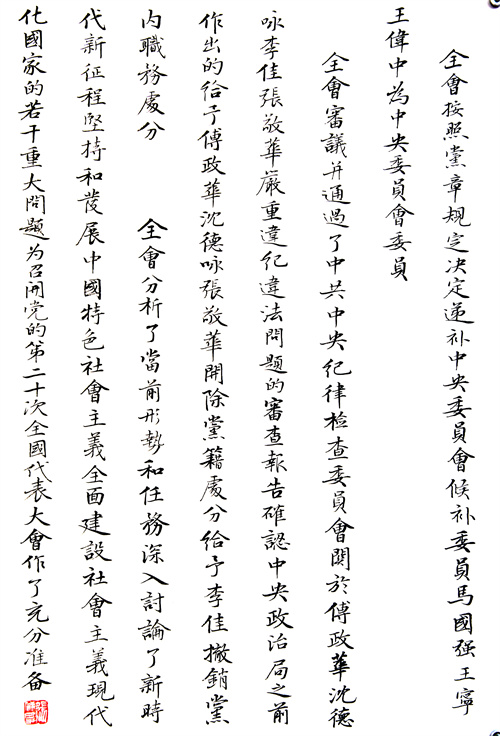 全會按照黨章規定決定递补中央委員會候补委員馬國强王寧
王偉中為中央委員會委員
全會審議并通過了中共中央纪律检查委員會關於傅政華沈德
咏李佳張敬華嚴重違纪違法問題的審查報告確認中央政治局之前
作出的给予傅政華沈德咏張敬華開除黨籍處分给予李佳撤銷黨
内職務處分 全會分析了當前形勢和任務深入討論了新時
代新征程堅持和發展中國特色社會主義全面建設社會主義現代
化國家的若干重大問题为召開党的第二十次全國代表大會作了充分准备